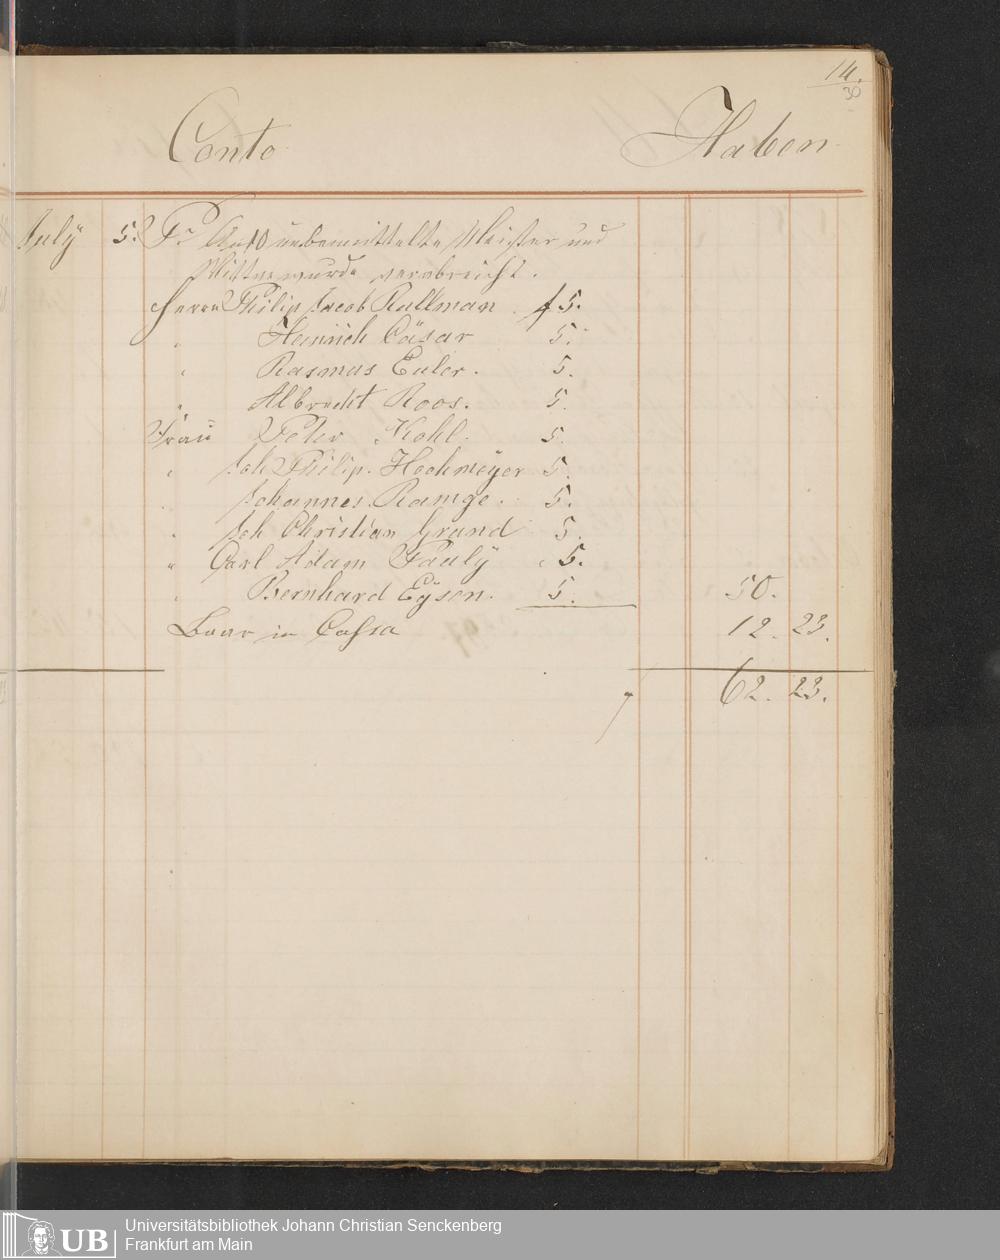 14.
30
Conto Haben
July 5. Pr Auf 10 unbemittelte Meister und
Wittwe wurde verabreicht.
Herrn Philip Jacob Rullman f 5.
" Heinrich Cäsar 5.
" Rasmus Euler. 5.
" Albrecht Roos. 5.
Frau Peter Kohl. 5.
" Joh Philip. Hochmeyer 5.
" Johannes Ramge. 5.
" Joh Christian Grand 5.
" Carl Adam Pauly 5.
" Bernhard Eÿsen. 5. 50.
Baar in Cassa 12. 23.
62. 23.
UB
Universitätsbibliothek Johann Christian Senckenberg
Frankfurt am Main